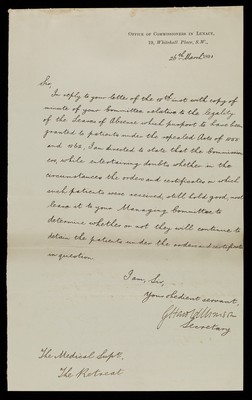 OFFICE OF COMMISSIONERS IN LUNACY,
19, Whitehall Place, S.W.,
26th March
Sir,
In reply to your letter of the 18th inst with copy of
minute of your Committee relative to the legality
of the Leaves of Absence which purport to have been
granted to patients under the repealed Acts of
and I am directed to state that the Commission
ers, while entertaining doubts whether in the
circumstances the orders and certificates on which
such patients were received, still hold good, must
leave it to your Managing Committee to
determine whether or not they will continue to
detain the patients under the orders and certificates
in question
I am, Sir,
Your obedient servant,
Secretary
The Medical Supt.
The Retreat